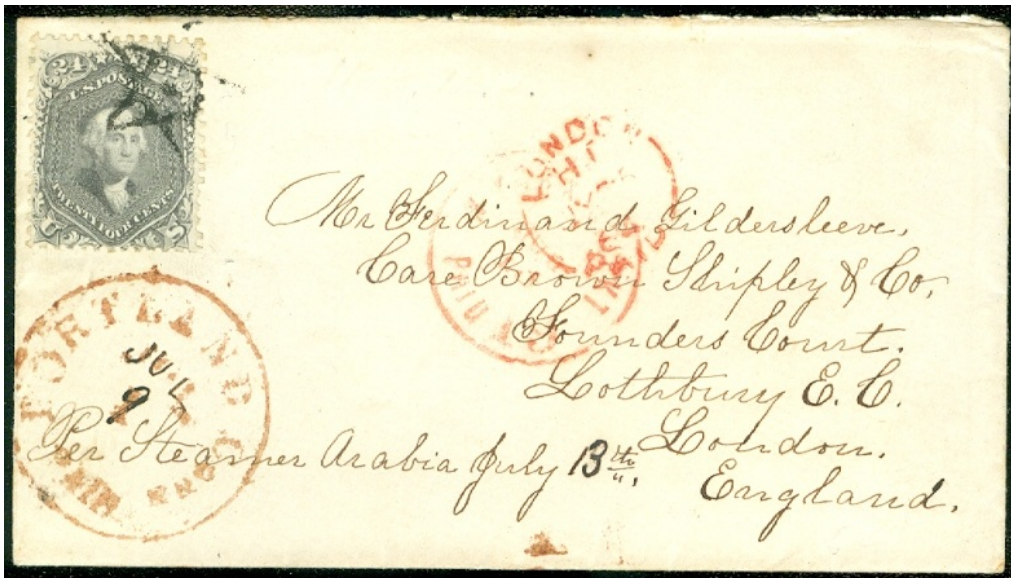 24 24
U.S. POSTAGE
TWENTY FOUR CENTS
U S
LONDON
PAID
Mr Ferdinand Gildersleeve,
Care Brown Shipley & Co,
Founders Court.
Lothbury E. C.
London.
England.
PORTLAND
CONN
JUL
9
Per Steamer Arabia July 13th,